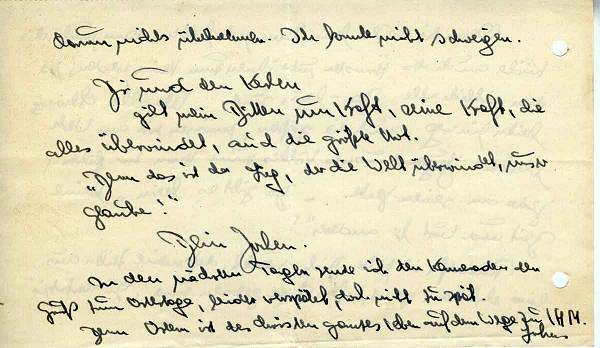 darum nichts übelnehmen. Ich konnte nicht schweigen.
Dir und den
gilt mein Bitten um Kraft, eine Kraft, die
alles überwindet, auch die größte Not.
"Denn das ist der Sieg, der die Welt überwindet, unser
Glaube!"
Dein
In den nächsten Tagen sende ich den Kameraden den
Gruß zum Ostertage, leider verspätet, doch nicht zu spät.
Denn Ostern ist des Christen ganzes Leben auf dem Wege zu